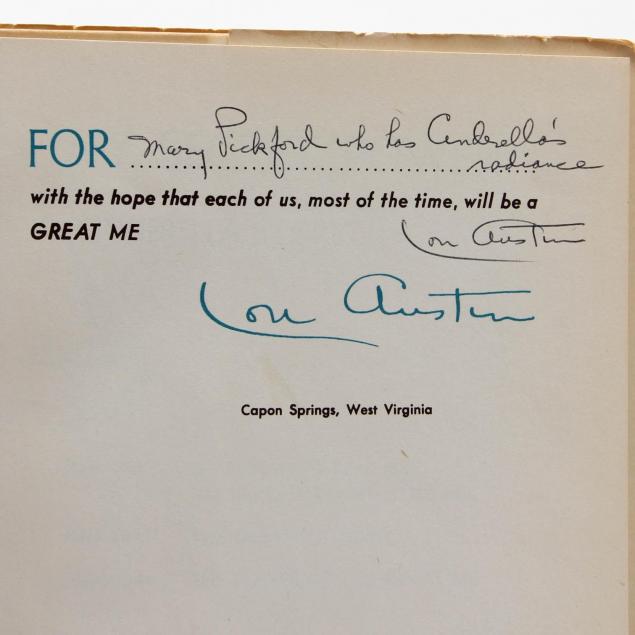 FOR Mary Pickford who has Cinderella's
radiance
with the hope that each of us, most of the time, will be a
GREAT ME
Lou Austin
Lou Austin
Capon Springs, West Virginia